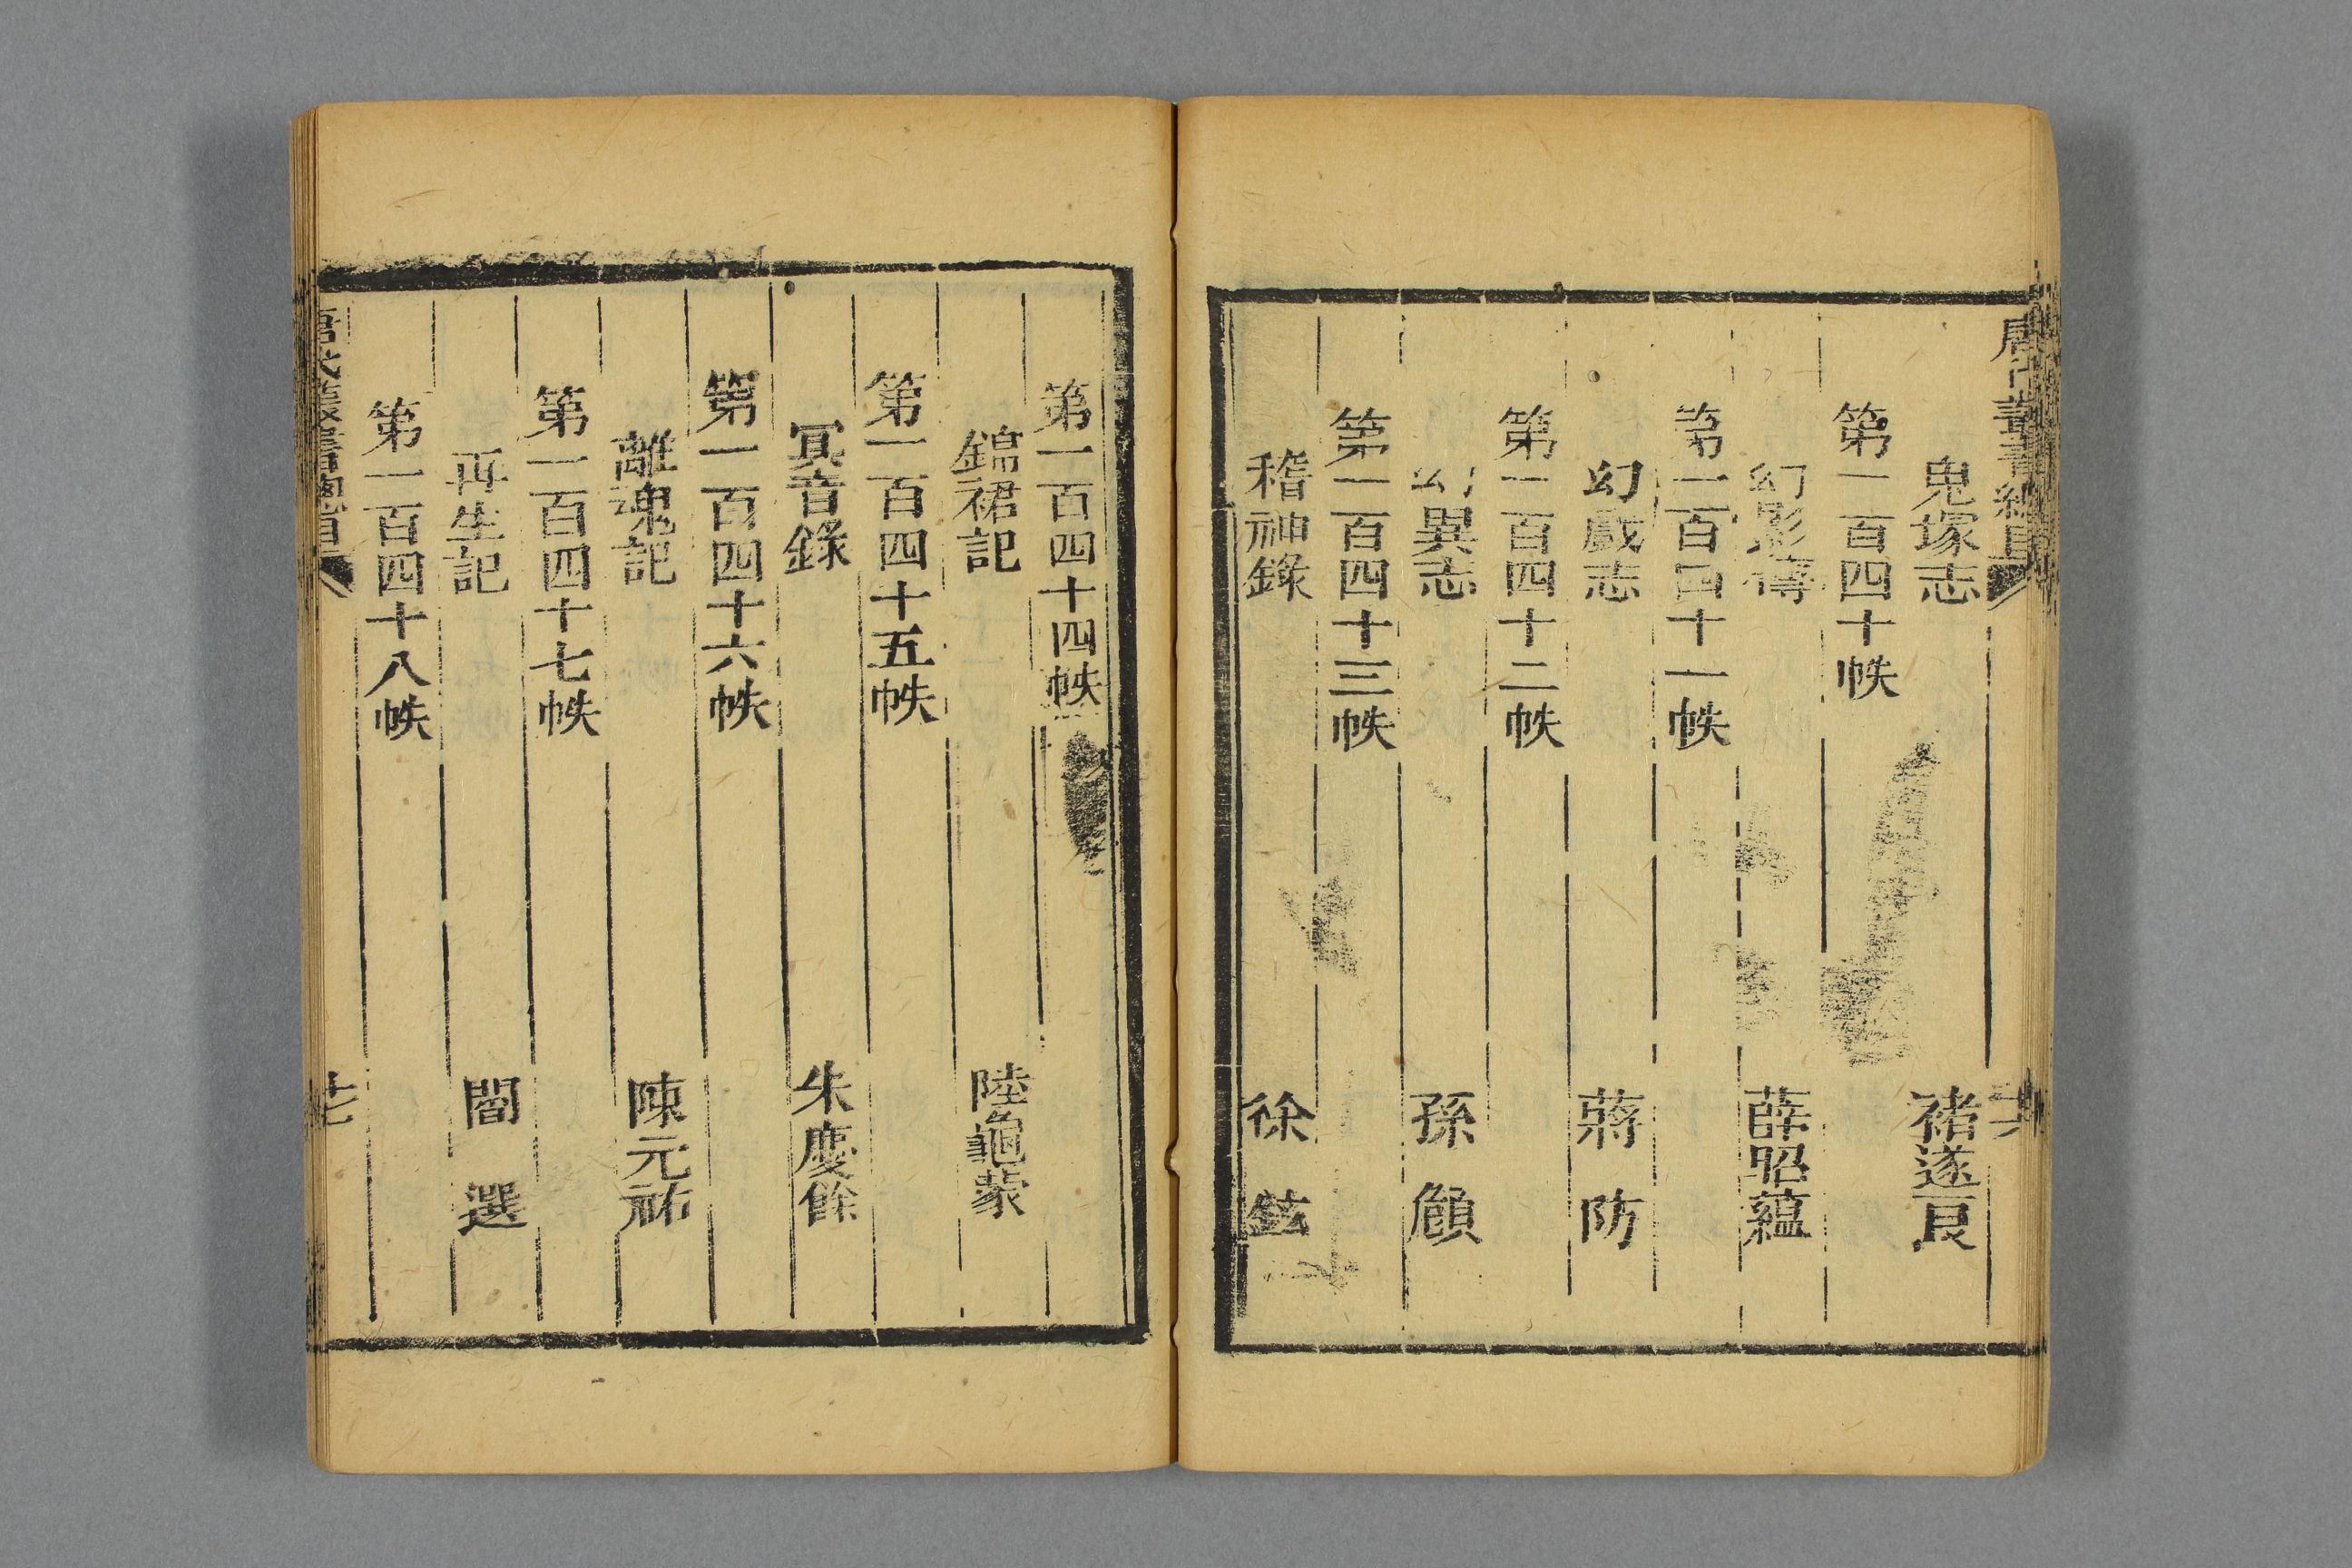 唐代叢書總目
鬼塚志 褚遂良
第一百四十帙
幻影傳 薛昭蘊
第一百四十一帙
幻戲志 蔣防
第一百四十二帙
幻異志 孫頠
第一百四十三帙
稽神錄 徐鉉
第一百四十四帙
錦裙記 陸龜蒙
第一百四十五帙
冥音錄 朱慶餘
第一百四十六帙
離魂記 陳元祐
第一百四十七帙
再生記 閻選
第一百四十八帙